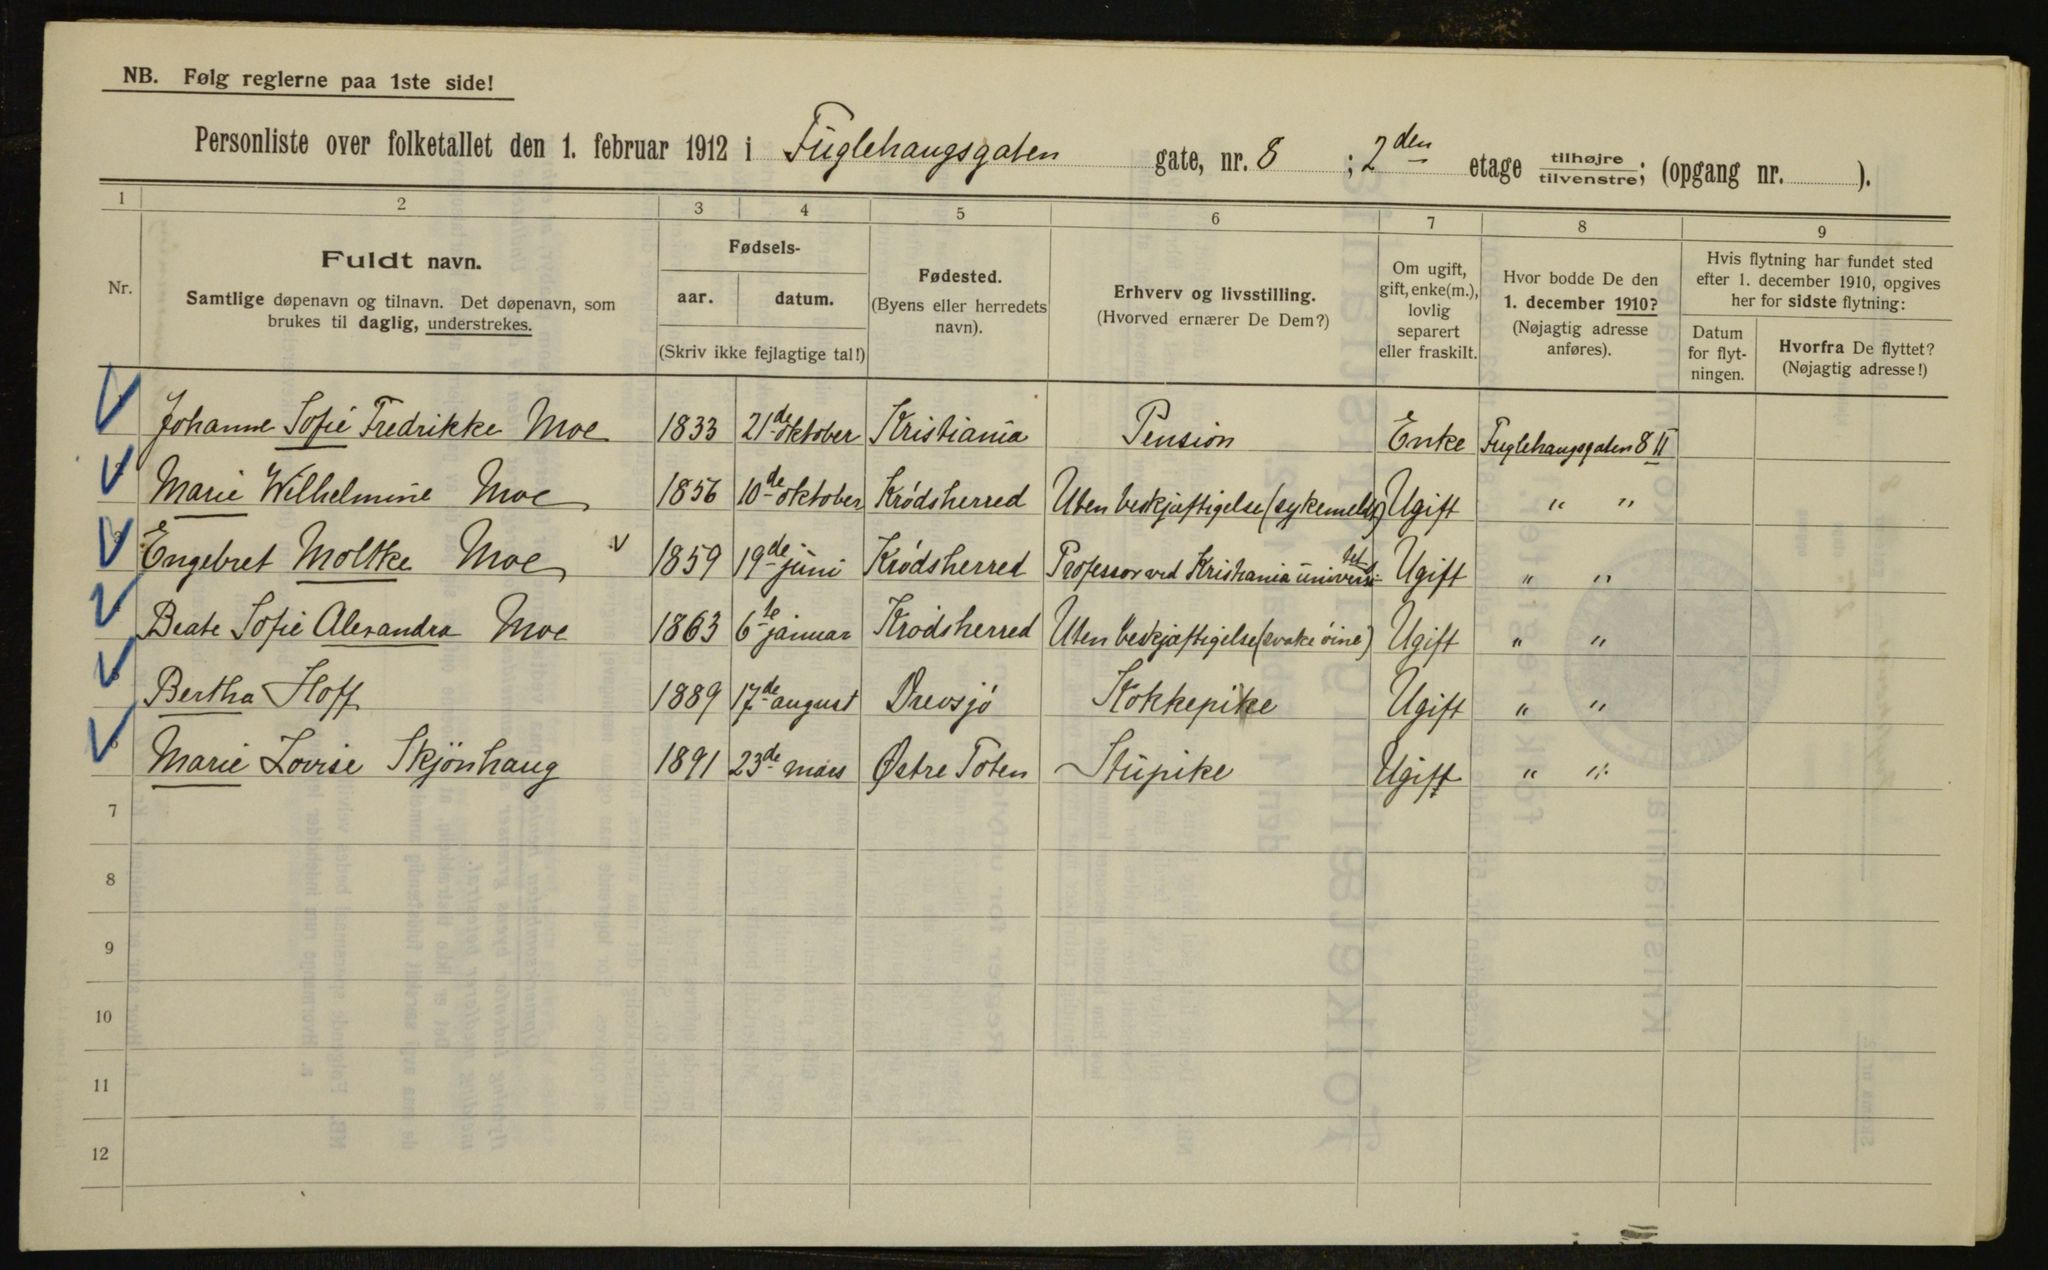 NB. Følg reglerne paa 1ste side!
Personliste over folketallet den 1. februar 1912 i Fuglehaugsgaten gate, nr. 8 ; 2den etage tilhøjre/tilvenstre; (opgang nr. ).
1 2 3 4 5 6 7 8 9
Nr.
Fuldt navn.
Samtlige døpenavn og tilnavn. Det døpenavn, som
brukes til daglig, understrekes.
Fødsels-
aar. datum.
(Skriv ikke fejlagtige tal!)
Fødested.
(Byens eller herredets
navn).
Erhverv og livsstilling.
(Hvorved ernærer De Dem?)
Om ugift,
gift, enke(m.),
lovlig
separert
eller fraskilt.
Hvor bodde De den
1. december 1910?
(Nøjagtig adresse
anføres).
Hvis flytning har fundet sted
efter 1. december 1910, opgives
her for sidste flytning:
Datum
for flyt-
ningen.
Hvorfra De flyttet?
(Nøjagtig adresse!)
Johanne Sofie Fredrikke Moe 1833 21de oktober Kristiania Pension Enke Fuglehaugsgaten 8 II
Marie Wilhelmine Moe 1856 10de oktober Krødsherred Uten beskjæftigelse (sykemeldt) Ugift " "
Engebret Moltke Moe v 1859 19de juni Krødsherred Professor ved Kristiania universitet Ugift " "
Beate Sofie Alexandra Moe 1863 6te januar Krødsherred Uten beskjæftigelse (svake øine) Ugift " "
Bertha Hoff 1889 17de august Drevsjö Kokkepike Ugift " "
6 Marie Lovise Skjönhaug 1891 23de mars Østre Toten Stupike Ugift " "
7
8
9
10
11
12